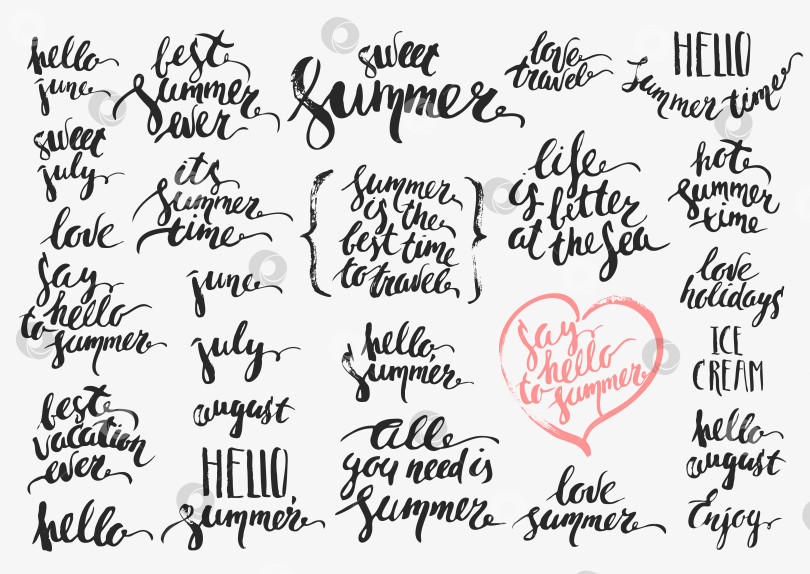 hello
june
sweet
july
love
say
hello
to summer
best
vacation
ever
hello
best
summer
ever
its
summer
time
june
july
august
HELLO,
summer
sweet
summer
summer
is the
best time
to travel
hello,
summer
all
you need is
summer
love
travel
life
is better
at the sea
say
hello
to summer
love
summer
HELLO
summer time
hot
summer
time
love
holidays
ICE
CREAM
hello
august
Enjoy